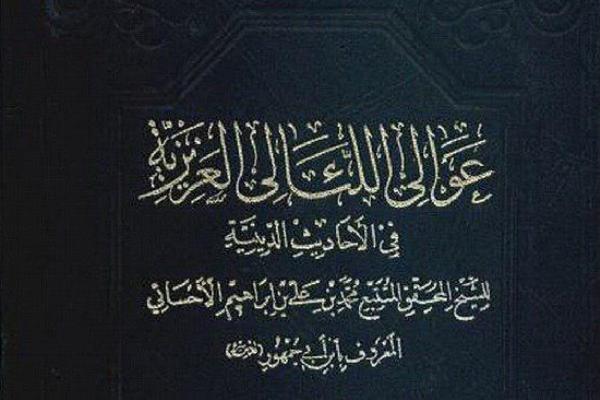 عَوَالِی اللَّئَالِی العَزِیزِیَّةِ
فِی الأَحَادِیثِ الدِّینِیَّةِ
لِلشَّیْخِ المُحَقِّقِ المُتَتَبِّعِ مُحَمَّدِ بْنِ عَلِیِّ بْنِ إِبْرَاهِیمَ الأَحْسَائِی
المَعْرُوفِ بِابْنِ أَبِی جُمْهُورِ